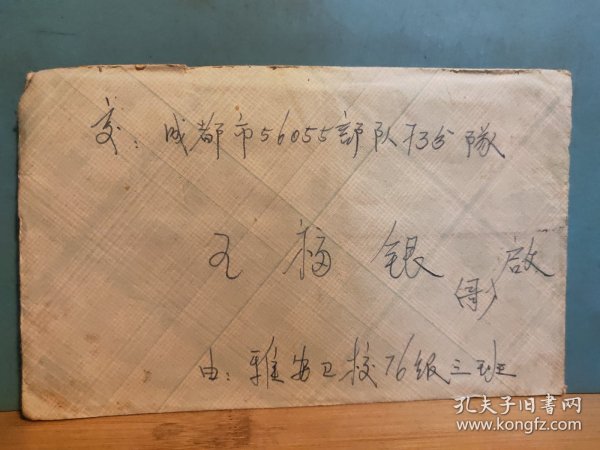 交：成都市56055部队73分隊
王福银(哥)啟
由：雅安卫校76级三班
孔夫子旧书网
www.kongfz.com